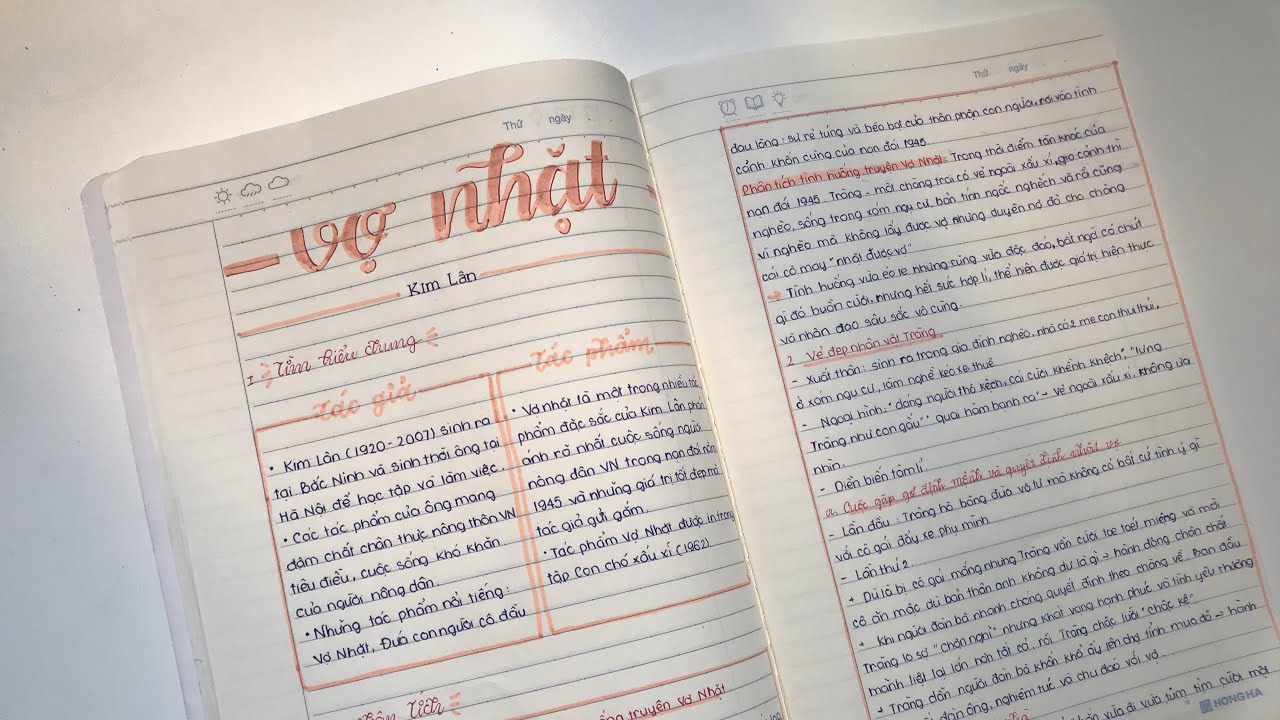 Thứ ngày
vợ nhặt
Kim Lân
I. Tìm hiểu chung
tác giả
• Kim Lân (1920 - 2007) sinh ra
tại Bắc Ninh và sinh thời ông tại
Hà Nội để học tập và làm việc.
• Các tác phẩm của ông mang
đậm chất chân thực nông thôn VN
tiêu điều, cuộc sống khó khăn
của người nông dân.
• Những tác phẩm nổi tiếng:
Vợ Nhặt, Đứa con người cô đầu
tác phẩm
• Vợ nhặt là một trong nhiều tác
phẩm đặc sắc của Kim Lân phản
ánh rõ nhất cuộc sống người
nông dân VN trong nạn đói năm
1945 và những giá trị tốt đẹp mà
tác giả gửi gắm.
• Tác phẩm Vợ Nhặt được in trong
tập Con chó xấu xí (1962)
truyện Vợ Nhặt
Thứ ngày
đau lòng: sự rẻ rúng và bèo bọt của thân phận con người, rơi vào tình
cảnh khốn cùng của nạn đói 1945
Phân tích tình huống truyện Vợ Nhặt: Trong thời điểm tàn khốc của
nạn đói 1945. Tràng - một chàng trai có vẻ ngoài xấu xí, gia cảnh thì
nghèo, sống trong xóm ngụ cư, bản tính ngốc nghếch và rồi cũng
vì nghèo mà không lấy được vợ nhưng duyên nợ đã cho chàng
cái cơ may "nhặt được vợ"
→ Tình huống vừa éo le nhưng cũng vừa độc đáo, bất ngờ có chút
gì đó buồn cười, nhưng hết sức hợp lí, thể hiện được giá trị hiện thực
và nhân đạo sâu sắc vô cùng.
2. Vẻ đẹp nhân vật Tràng
- Xuất thân: sinh ra trong gia đình nghèo, nhà có 2 mẹ con thui thủi,
ở xóm ngụ cư, làm nghề kéo xe thuê
- Ngoại hình: "dáng người thô kệch, cái cười khềnh khệch", "lưng
Tràng như con gấu" "quai hàm bạnh ra" → vẻ ngoài xấu xí, không ưa
nhìn.
- Diễn biến tâm lí
a. Cuộc gặp gỡ định mệnh và quyết định nhặt vợ
- Lần đầu: Tràng hò bâng đùa vô tư mà không có bất cứ tình ý gì
với cô gái đẩy xe phụ mình
- Lần thứ 2
+ Dù là bị cô gái mắng nhưng Tràng vẫn cười toe toét miệng và mời
cô ăn mặc dù bản thân anh không dư lả gì → hành động chân chất
+ Khi người đàn bà nhanh chóng quyết định theo chồng về. Ban đầu
Tràng lo sợ "chợn nghĩ" nhưng khát vọng hạnh phúc và tình yêu thương
mãnh liệt lại lớn hơn tất cả, rồi Tràng chắc lưỡi "chậc kệ".
+ Tràng dẫn người đàn bà khốn khổ ấy lên chợ tỉnh mua đồ → hành
đàn ông, nghiêm túc và chu đáo với vợ.
vừa đi vừa tủm tỉm cười một
HONG HA